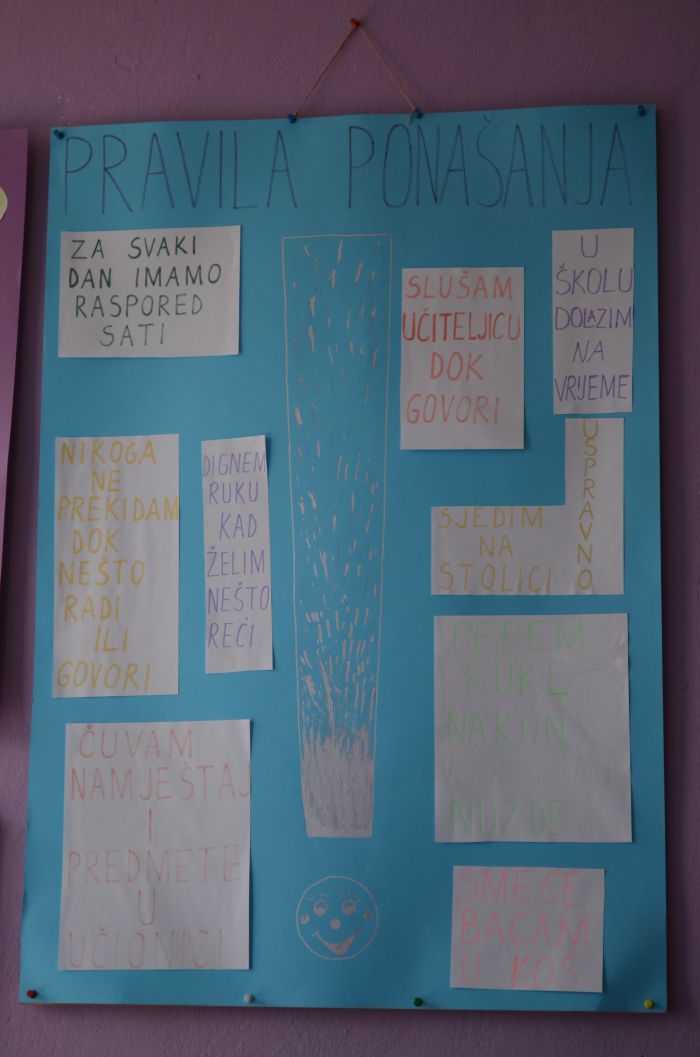 PRAVILA PONAŠANJA
ZA SVAKI
DAN IMAMO
RASPORED
SATI
SLUŠAM
UČITELJICU
DOK
GOVORI
U
ŠKOLU
DOLAZIM
NA
VRIJEME
NIKOGA
NE
PREKIDAM
DOK
NEŠTO
RADI
ILI
GOVORI
DIGNEM
RUKU
KAD
ŽELIM
NEŠTO
REĆI
SJEDIM
NA
STOLICI
USPRAVNO
PEREM
RUKE
NAKON
NUŽDE
ČUVAM
NAMJEŠTAJ
I
PREDMETE
U
UČIONICI
SMEĆE
BACAM
U KOŠ